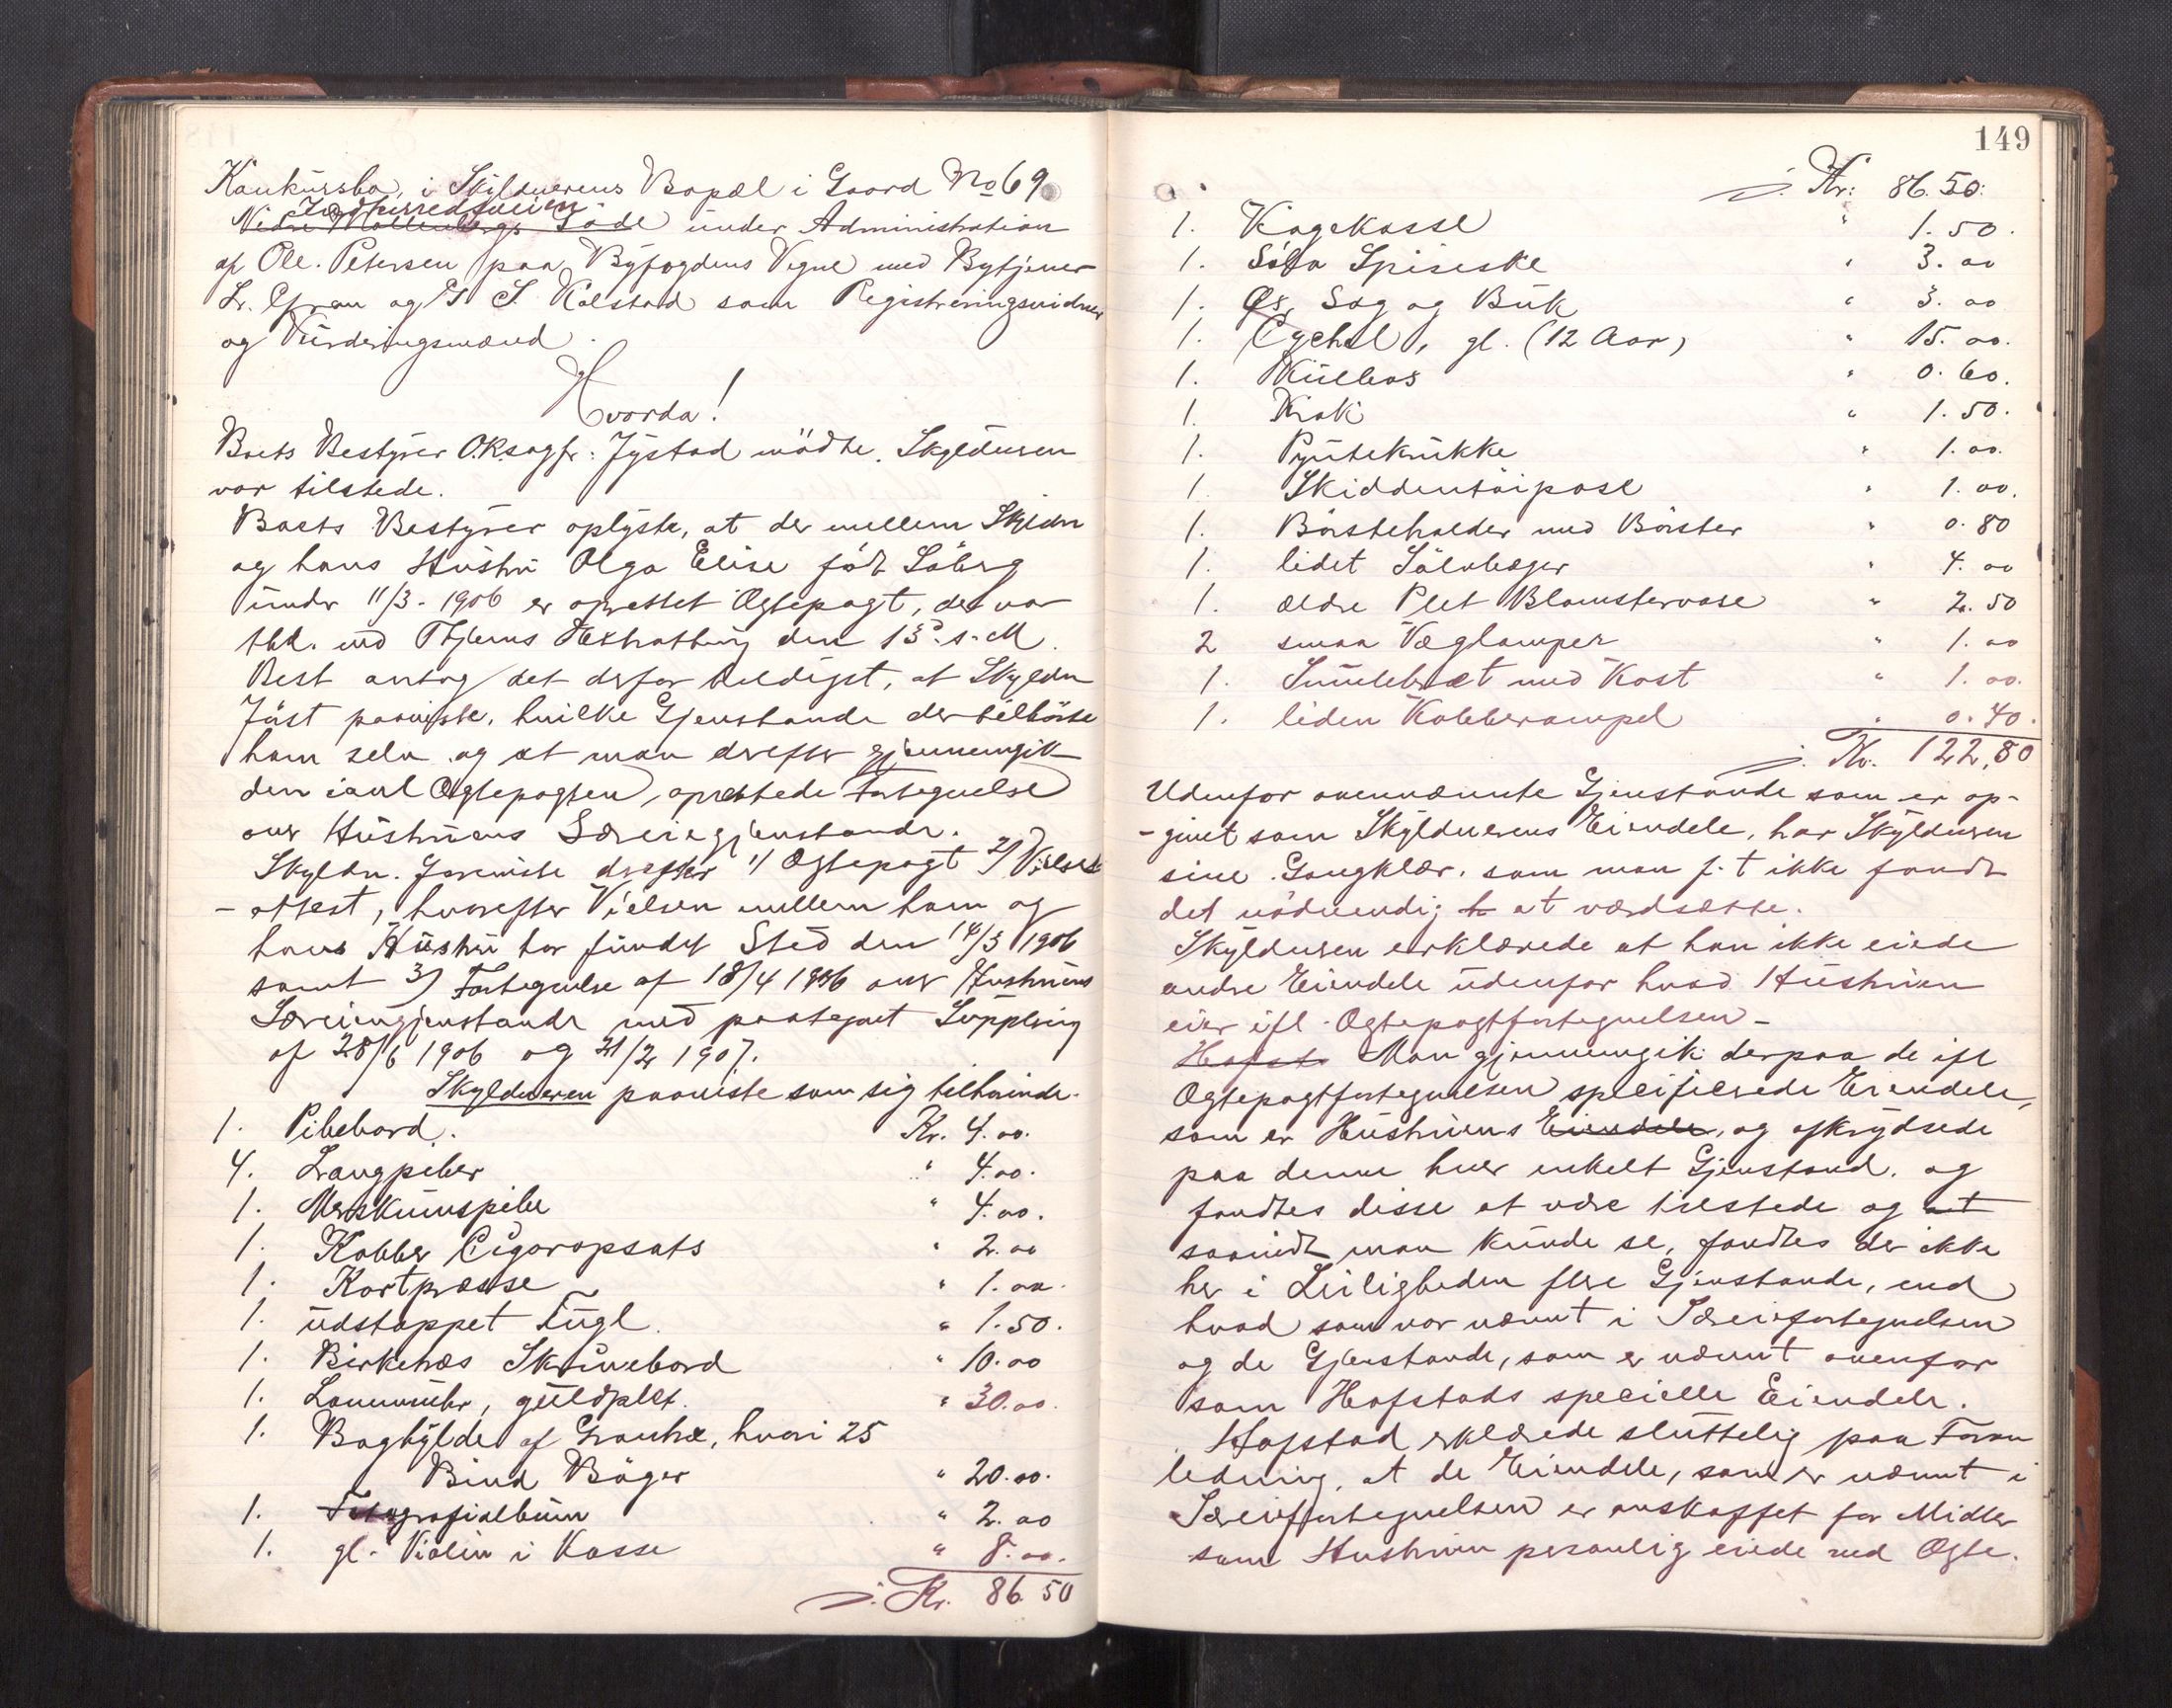 Konkursbo, i Skyldnerens Bopæl i Gaard No 69
Indherredsveien
Nedre Møllenbergs Gade under Administration
af Ole Petersen paa Byfogdens Vegne med Bytjener
og T S Kolstad som Registreringsvidner
og Vurderingsmænd.
Hvorda!
Boets Bestyrer O.R.sagfr: Jystad mødte. Skyldneren
var tilstede.
Boets Bestyrer oplyste, at der mellem Skyldn
og hans Hustru Olga Elise født Søberg
under 11/3 - 1906 er oprettet Ægtepagt, der var
thl. ved Thjems Extratting den 13d s. M.
Best antog det derfor heldigst, at Skyldn
først paaviste, hvilke Gjenstande der tilhørte
ham selv og at man derefter gjennemgik
den i anl Ægtepagten, oprettede Fortegnelse
over Hustruens Særeiegjenstande.
Skyldn. foreviste derefter 1/ Ægtepagt 2/ Vielses
- attest, hvorefter Vielsen mellem ham og
hans Hustru har fundet Sted den 14/3 1906
samt 3) Fortegnelse af 18/4 1906 over Hustruens
Særeiegjenstande med paategnet Supplering
af 28/6 1906 og 21/2 1907.
Skyldneren paaviste som sig tilhørende.
1. Pibebord. Kr. 4.00.
4. Langpiber " 4.00.
1. Merskumspibe " 4.00.
1. Kobber Cigaropsats " 2.00
1. Kortpresse " 1.00.
1. udstoppet Fugl. " 1.50.
1. Birketræs Skrivebord " 10.00
1. Lommeuhr, guldplet. " 30.00.
1. Boghylde af Grantræ, hvori 25
Bind Bøger " 20.00.
1. Fotografialbum " 2.00
1. gl. Violin i Kasse " 8.00.
Kr. 86 50
149
Kr: 86.50:
1. Kagekasse " 1.50.
1. Sølv Spiseske " 3.00
1. Øs, Sag og Buk " 3.00
1. Cychel, gl. (12 Aar) " 15.00.
1. Kulbox " 0.60.
1. Krak " 1.50.
1. Pyntekrukke " 1.00.
1. Skiddentøipose " 1.00.
1. Børsteholder med Børster " 0.80
1. lidet Sølvbæger " 4.00
1. ældre Plet Blomstervase " 2.50
2 smaa Væglamper " 1.00
1. Smulebræt med Kost " 1.00.
1. liden Kobberampel " 0.40.
Kr. 122,80
Udenfor ovennævnte Gjenstande som er op-
- givet som Skyldnerens Eiendele, har Skyldneren
sine Gangklær, som man f. t ikke fandt
det nødvendig at værdsætte.
Skyldneren erklærede at han ikke eiede
andre Eiendele udenfor hvad Hustruen
eier ifl. Ægtepagtfortegnelsen -
Hofst Man gjennemgik derpaa de ifl
Ægtepagtfortegnelsen specificerede Eiendele,
som er Hustruens Eiendele, og afkrydsede
paa denne hver enkelt Gjenstand, og
fandtes disse at være tilstede og at
saavidt man kunde se, fandtes der ikke
her i Leiligheden flere Gjenstande, end
hvad som var nævnt i Særeiefortegnelsen
og de Gjenstande, som er nævnt ovenfor
som Hofstads specielle Eiendele.
Hofstad erklærede sluttelig paa Foran
ledning, at de Eiendele, som er nævnt i
Særeiefortegnelsen er anskaffet for Midler
som Hustruen personlig eiede ved Ægte.